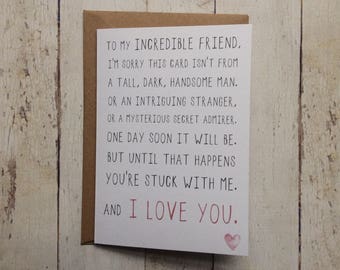 TO MY INCREDIBLE FRIEND,
I'M SORRY THIS CARD ISN'T FROM
A TALL, DARK, HANDSOME MAN.
OR AN INTRIGUING STRANGER,
OR A MYSTERIOUS SECRET ADMIRER.
ONE DAY SOON IT WILL BE.
BUT UNTIL THAT HAPPENS
YOU'RE STUCK WITH ME.
AND I LOVE YOU.